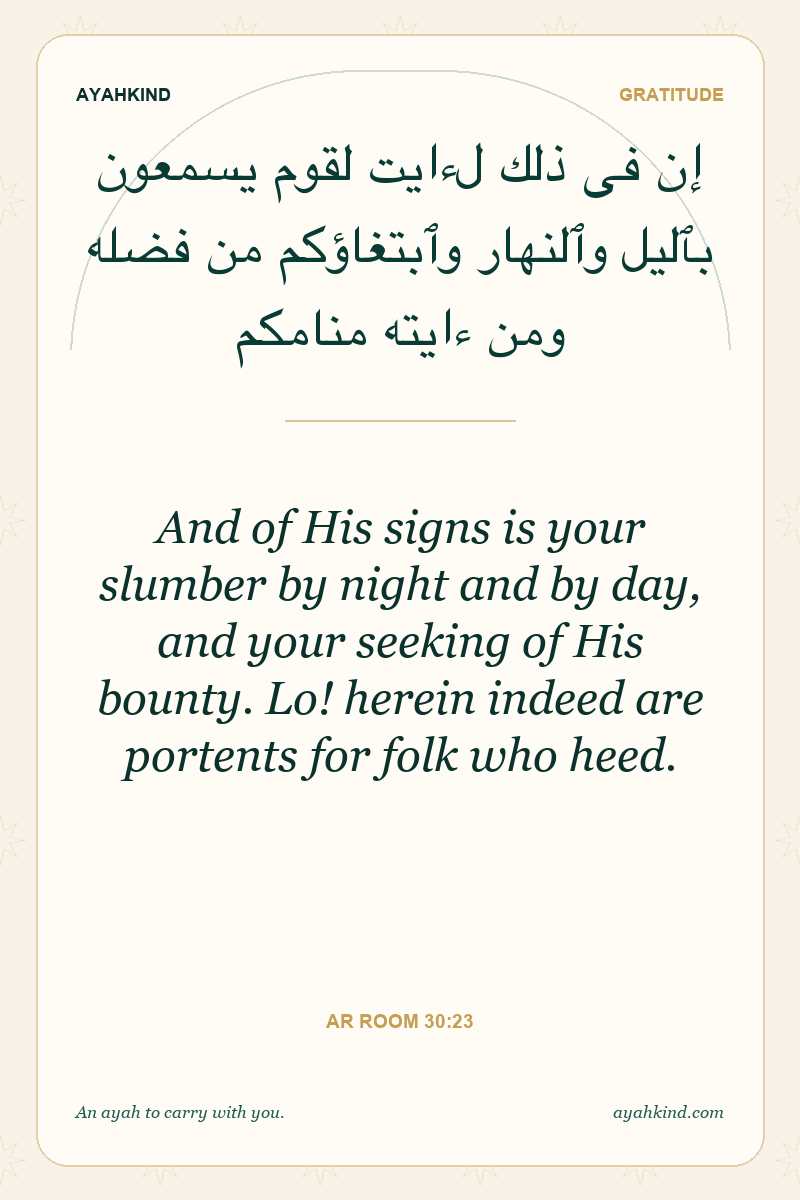 AYAHKIND
GRATITUDE
إن فى ذلك لءايت لقوم يسمعون
بٱليل وٱلنهار وٱبتغاؤكم من فضله
ومن ءايته منامكم
And of His signs is your
slumber by night and by day,
and your seeking of His
bounty. Lo! herein indeed are
portents for folk who heed.
AR ROOM 30:23
An ayah to carry with you.
ayahkind.com